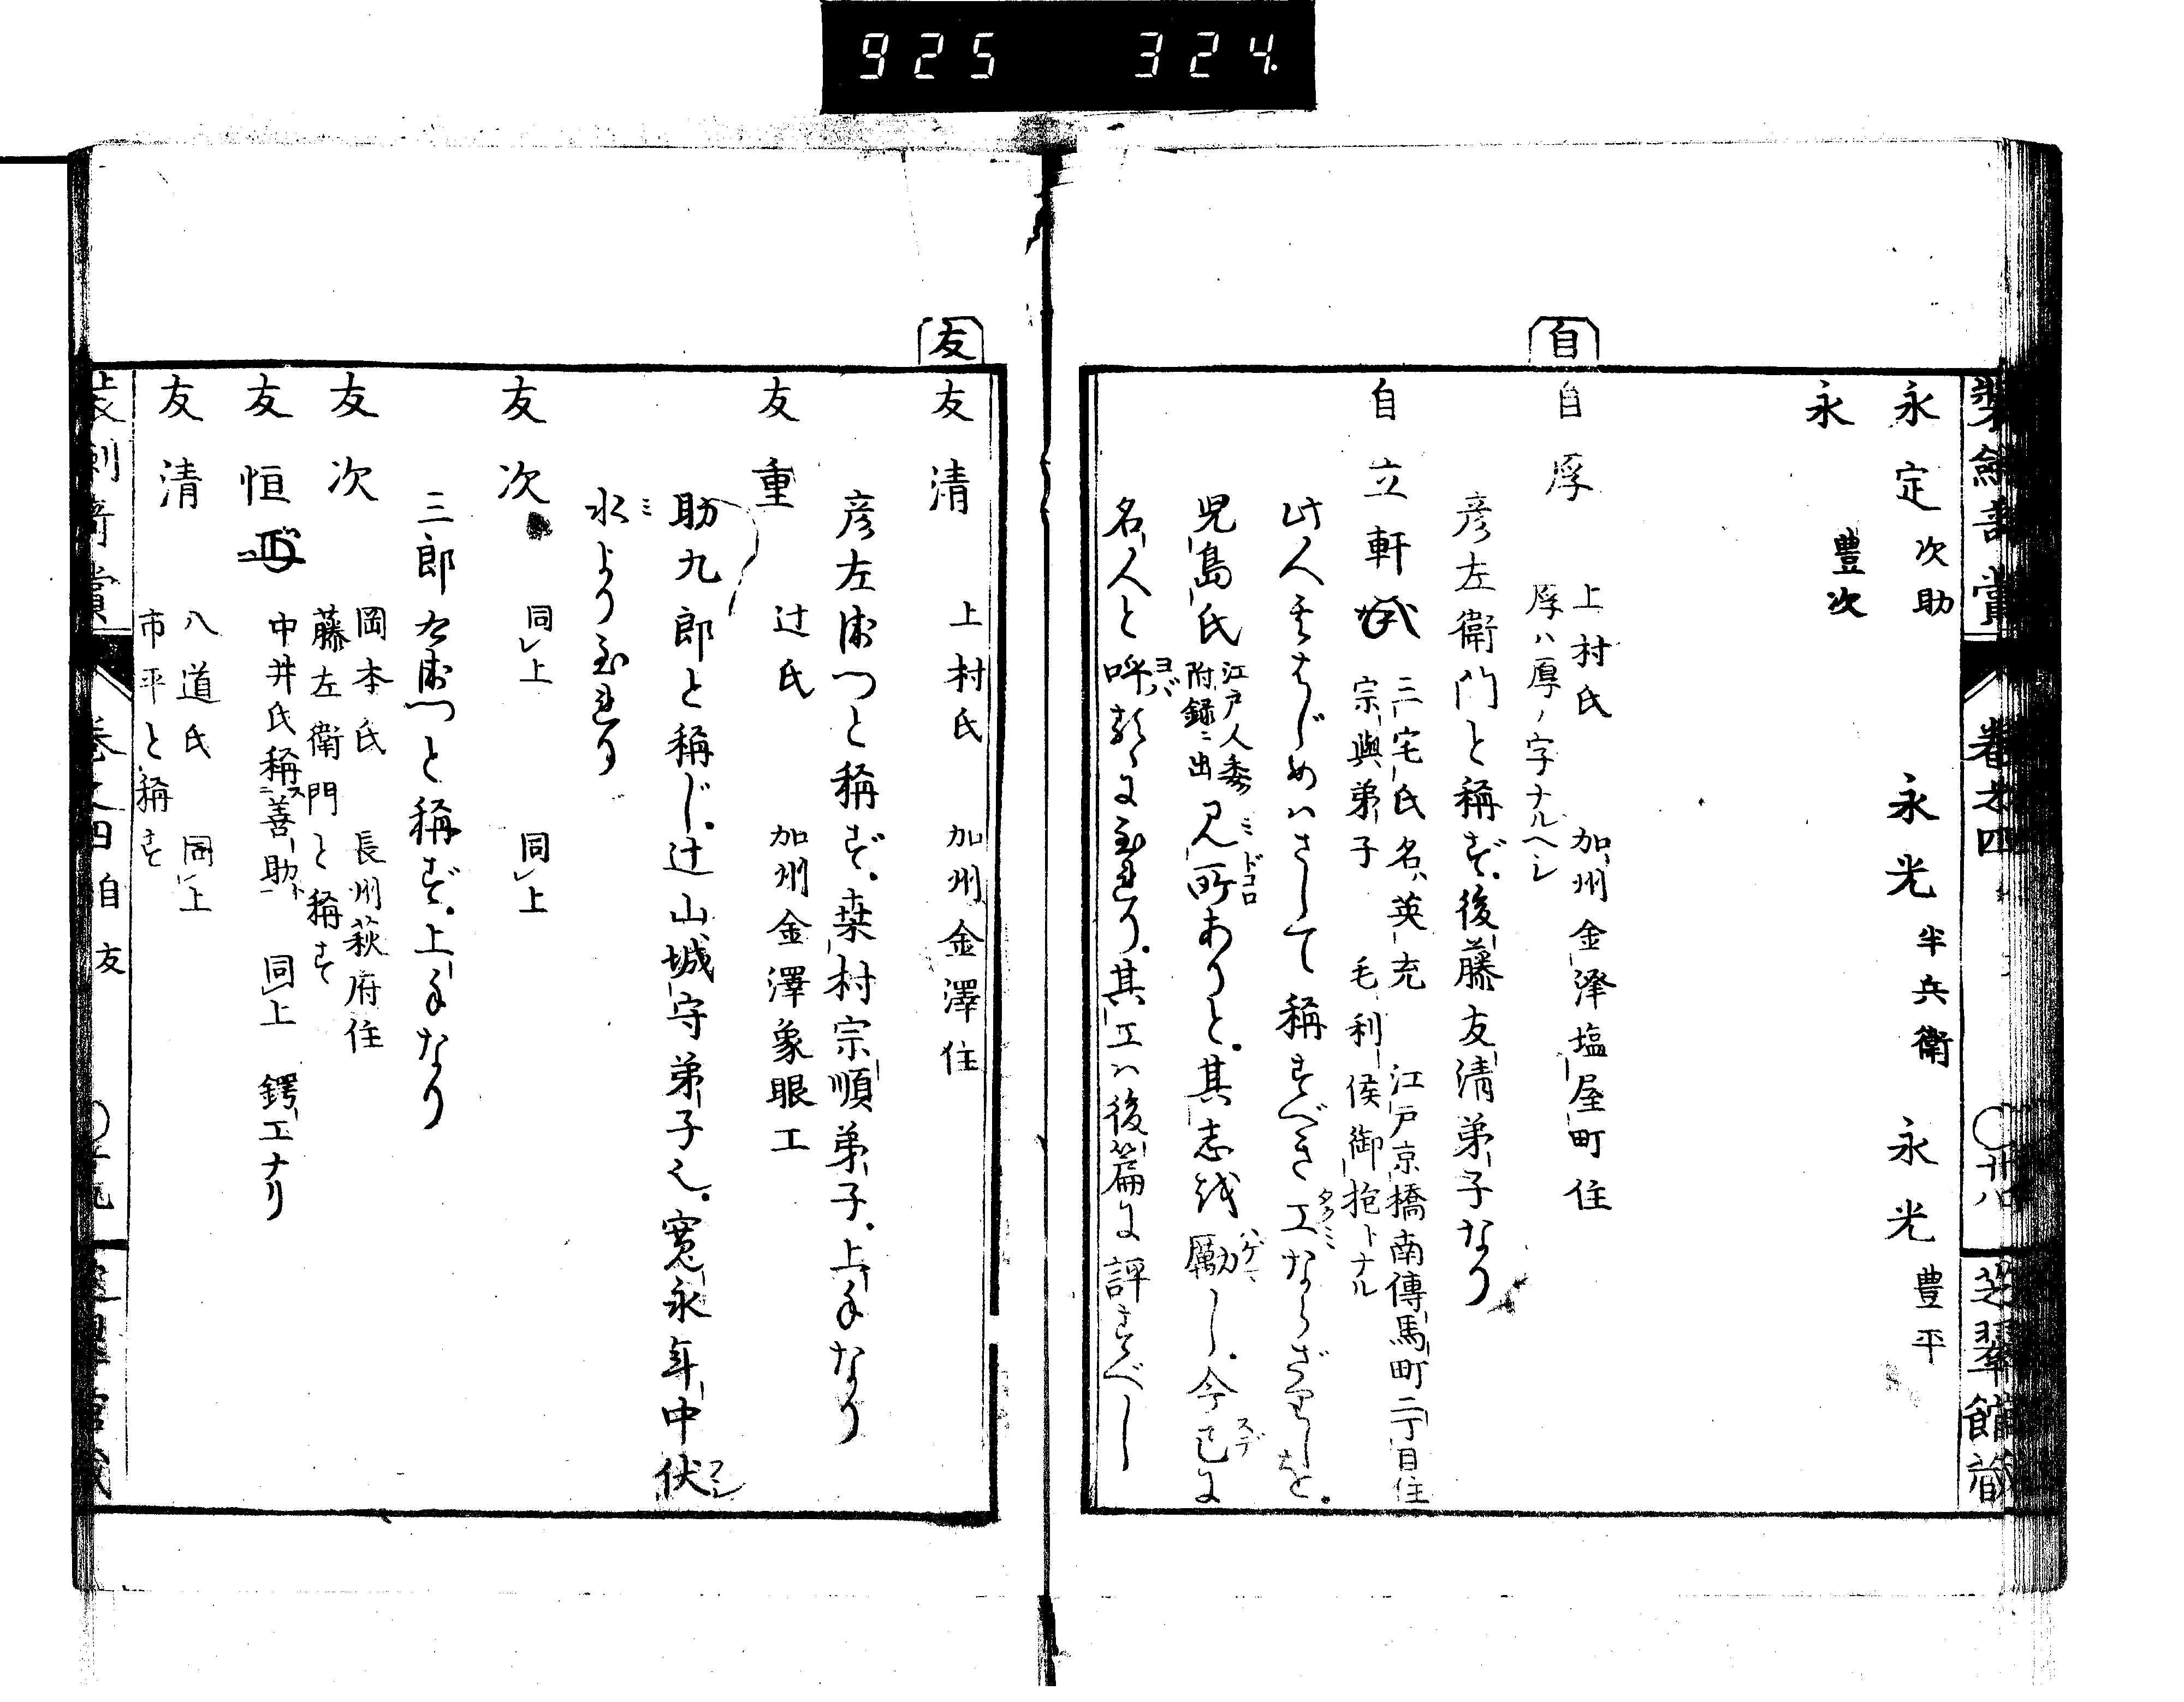 925 324.
永定 次助 永光 半兵衛 永光 豊平
永 豊次
自
自厚 上村氏 加州金澤塩屋町住
厚ハ厚ノ字ナルヘシ
彦左衛門と稱ず。後藤友清弟子なり
自立軒 三宅氏名英充 江戸京橋南傳馬町二丁目住
宗與弟子 毛利侯御抱トナル
此人まちじめハさして稱すべき工タクミならざりしを。
児島氏 江戸人委
附録ニ出 見所ミドコロありと。其志を勵ハゲマし。今已スデに
名人と呼ヨバるゝに至れり。其工ハ後篇に評すべし
友
友清 上村氏 加州金澤住
彦左衛门と稱ず。桒村宗順弟子。上手なり
友重 辻氏 加州金澤象眼工
助九郎と稱じ。辻山城守弟子也。寛永年中伏フシ
水ミより至れり
友次 同上 同上
三郎右衛门と稱ず。上手なり
友次 岡本氏 長州萩府住
藤左衛門と稱す
友恒 中井氏稱ス善助ト 同上 鍔工ナリ
友清 八道氏 同上
市平と稱す
卷之四 自 友